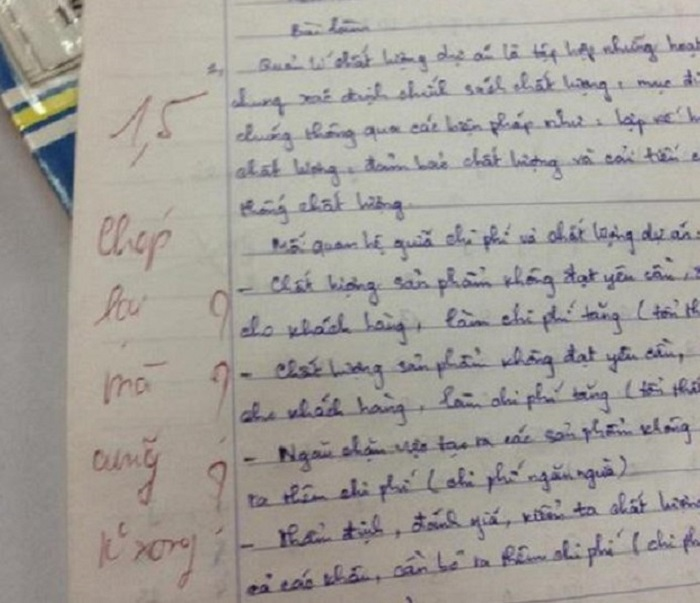 Bài làm
1,5
2, Quản lí chất lượng dự án là tập hợp những hoạt
chung xác định chính sách chất lượng, mục đí
chúng thông qua các biện pháp như: lập kế h
chất lượng, đảm bảo chất lượng và cải tiến
thống chất lượng.
Chép
Mối quan hệ giữa chi phí và chất lượng dự án
- Chất lượng sản phẩm không đạt yêu cầu,
bài ?
cho khách hàng, làm chi phí tăng (tổn th
- Chất lượng sản phẩm không đạt yêu cầu,
mà ?
cho khách hàng, làm chi phí tăng (tổn thất
- Ngăn chặn việc tạo ra các sản phẩm không
cũng ?
ra thêm chi phí (chi phí ngăn ngừa)
- Thẩm định, đánh giá, kiểm tra chất lượng
k° xong !
cả các khâu, cần bỏ ra thêm chi phí (chi ph